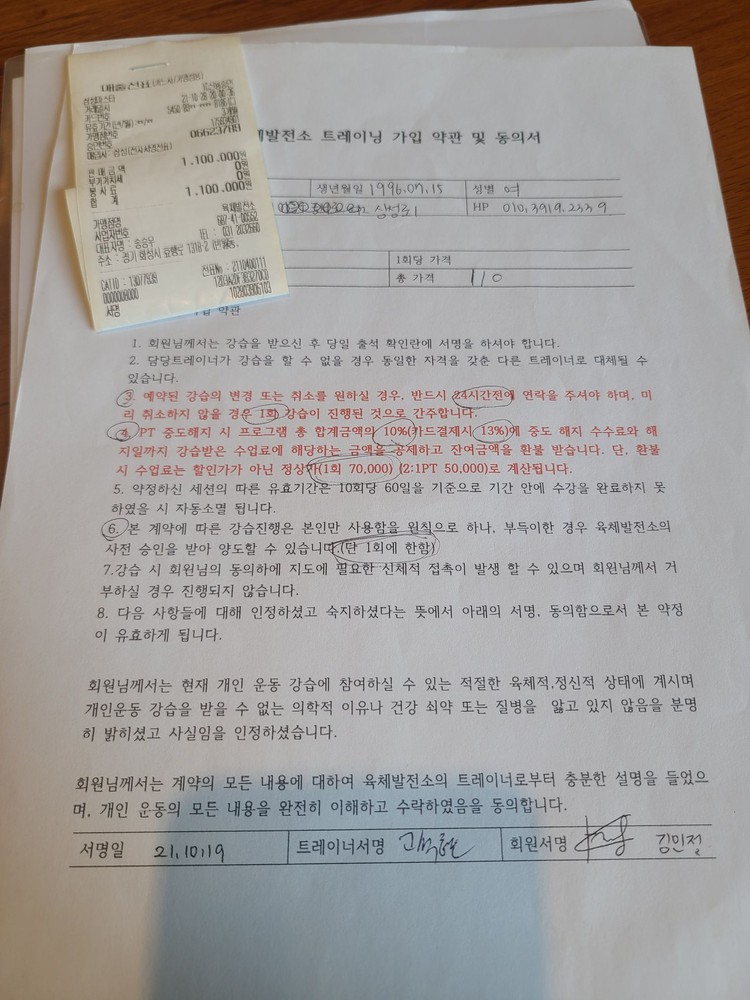 매출전표(카드사/가맹점용)
삼성마스타
거래일시 21-10-26 20:06:36
카드번호
유효기간(년/월) : **/**
가맹점번호
승인번호 06623789
매입사 : 삼성(전자서명전표)
판 매 금 액 1,100,000원
부가가치세 0원
봉 사 료 0원
합 계 1,100,000원
가맹점명 육체발전소
사업자번호 687-41-00552
대표자명 : 송승우 TEL : 031 2032660
주소 : 경기 화성시 효행로 1318-2
CATID : 13077939 전표No : 2110400111
0000008000
서명 102803906103
체발전소 트레이닝 가입 약관 및 동의서
생년월일 1996.07.15 성별 여
HP 010.3919.2339
1회당 가격
총 가격 110
약관
1. 회원님께서는 강습을 받으신 후 당일 출석 확인란에 서명을 하셔야 합니다.
2. 담당트레이너가 강습을 할 수 없을 경우 동일한 자격을 갖춘 다른 트레이너로 대체될 수
있습니다.
3. 예약된 강습의 변경 또는 취소를 원하실 경우, 반드시 24시간전에 연락을 주셔야 하며, 미
리 취소하지 않을 경우 1회 강습이 진행된 것으로 간주합니다.
4. PT 중도해지 시 프로그램 총 합계금액의 10%(카드결제시 13%)에 중도 해지 수수료와 해
지일까지 강습받은 수업료에 해당하는 금액을 공제하고 잔여금액을 환불 받습니다. 단, 환불
시 수업료는 할인가가 아닌 정상가(1회 70,000) (2:1PT 50,000)로 계산됩니다.
5. 약정하신 세션의 따른 유효기간은 10회당 60일을 기준으로 기간 안에 수강을 완료하지 못
하였을 시 자동소멸 됩니다.
6. 본 계약에 따른 강습진행은 본인만 사용함을 원칙으로 하나, 부득이한 경우 육체발전소의
사전 승인을 받아 양도할 수 있습니다.(단 1회에 한함)
7.강습 시 회원님의 동의하에 지도에 필요한 신체적 접촉이 발생 할 수 있으며 회원님께서 거
부하실 경우 진행되지 않습니다.
8. 다음 사항들에 대해 인정하셨고 숙지하셨다는 뜻에서 아래의 서명, 동의함으로서 본 약정
이 유효하게 됩니다.
회원님께서는 현재 개인 운동 강습에 참여하실 수 있는 적절한 육체적,정신적 상태에 계시며
개인운동 강습을 받을 수 없는 의학적 이유나 건강 쇠약 또는 질병을 앓고 있지 않음을 분명
히 밝히셨고 사실임을 인정하셨습니다.
회원님께서는 계약의 모든 내용에 대하여 육체발전소의 트레이너로부터 충분한 설명을 들었으
며, 개인 운동의 모든 내용을 완전히 이해하고 수락하였음을 동의합니다.
서명일 21.10.19 트레이너서명 회원서명 김민정